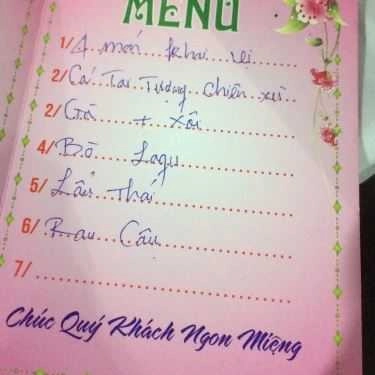 MENU
1/ 4 món khai vị
2/ Cá Tai Tượng chiên xù
2/ Gà + Xôi
4/ Bò Lagu
5/ Lẩu Thái
6/ Rau Câu
7/
Chúc Quý Khách Ngon Miệng